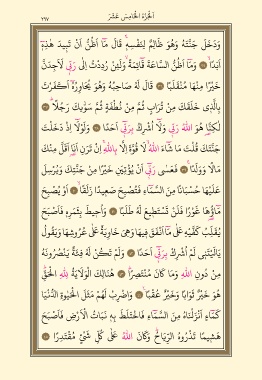 الجزء الخامس عشر
٢٩٧
وَدَخَلَ جَنَّتَهُ وَهُوَ ظَالِمٌ لِنَفْسِهِ قَالَ مَٓا اَظُنُّ اَنْ تَب۪يدَ هٰذِه۪ٓ
اَبَدًا ﴿٣٥﴾ وَمَٓا اَظُنُّ السَّاعَةَ قَٓائِمَةً وَلَئِنْ رُدِدْتُ اِلٰى رَبّ۪ي لَاَجِدَنَّ
خَيْرًا مِنْهَا مُنْقَلَبًا ﴿٣٦﴾ قَالَ لَهُ صَاحِبُهُ وَهُوَ يُحَاوِرُهُٓ اَكَفَرْتَ
بِالَّذ۪ي خَلَقَكَ مِنْ تُرَابٍ ثُمَّ مِنْ نُطْفَةٍ ثُمَّ سَوّٰيكَ رَجُلًا ﴿٣٧﴾
لٰكِنَّا۬ هُوَ اللّٰهُ رَبّ۪ي وَلَٓا اُشْرِكُ بِرَبّ۪ٓي اَحَدًا ﴿٣٨﴾ وَلَوْلَٓا اِذْ دَخَلْتَ
جَنَّتَكَ قُلْتَ مَا شَٓاءَ اللّٰهُ لَا قُوَّةَ اِلَّا بِاللّٰهِ اِنْ تَرَنِ اَنَا۬ اَقَلَّ مِنْكَ
مَالًا وَوَلَدًا ﴿٣٩﴾ فَعَسٰى رَبّ۪ٓي اَنْ يُؤْتِيَنِ خَيْرًا مِنْ جَنَّتِكَ وَيُرْسِلَ
عَلَيْهَا حُسْبَانًا مِنَ السَّمَٓاءِ فَتُصْبِحَ صَع۪يدًا زَلَقًا ﴿٤٠﴾ اَوْ يُصْبِحَ
مَٓاؤُ۬هَا غَوْرًا فَلَنْ تَسْتَط۪يعَ لَهُ طَلَبًا ﴿٤١﴾ وَاُح۪يطَ بِثَمَرِه۪ فَاَصْبَحَ
يُقَلِّبُ كَفَّيْهِ عَلٰى مَٓا اَنْفَقَ ف۪يهَا وَهِيَ خَاوِيَةٌ عَلٰى عُرُوشِهَا وَيَقُولُ
يَا لَيْتَن۪ي لَمْ اُشْرِكْ بِرَبّ۪ٓي اَحَدًا ﴿٤٢﴾ وَلَمْ تَكُنْ لَهُ فِئَةٌ يَنْصُرُونَهُ
مِنْ دُونِ اللّٰهِ وَمَا كَانَ مُنْتَصِرًا ﴿٤٣﴾ هُنَالِكَ الْوَلَايَةُ لِلّٰهِ الْحَقِّ
هُوَ خَيْرٌ ثَوَابًا وَخَيْرٌ عُقْبًا ﴿٤٤﴾ وَاضْرِبْ لَهُمْ مَثَلَ الْحَيٰوةِ الدُّنْيَا
كَمَٓاءٍ اَنْزَلْنَاهُ مِنَ السَّمَٓاءِ فَاخْتَلَطَ بِه۪ نَبَاتُ الْاَرْضِ فَاَصْبَحَ
هَش۪يمًا تَذْرُوهُ الرِّيَاحُ وَكَانَ اللّٰهُ عَلٰى كُلِّ شَيْءٍ مُقْتَدِرًا ﴿٤٥﴾